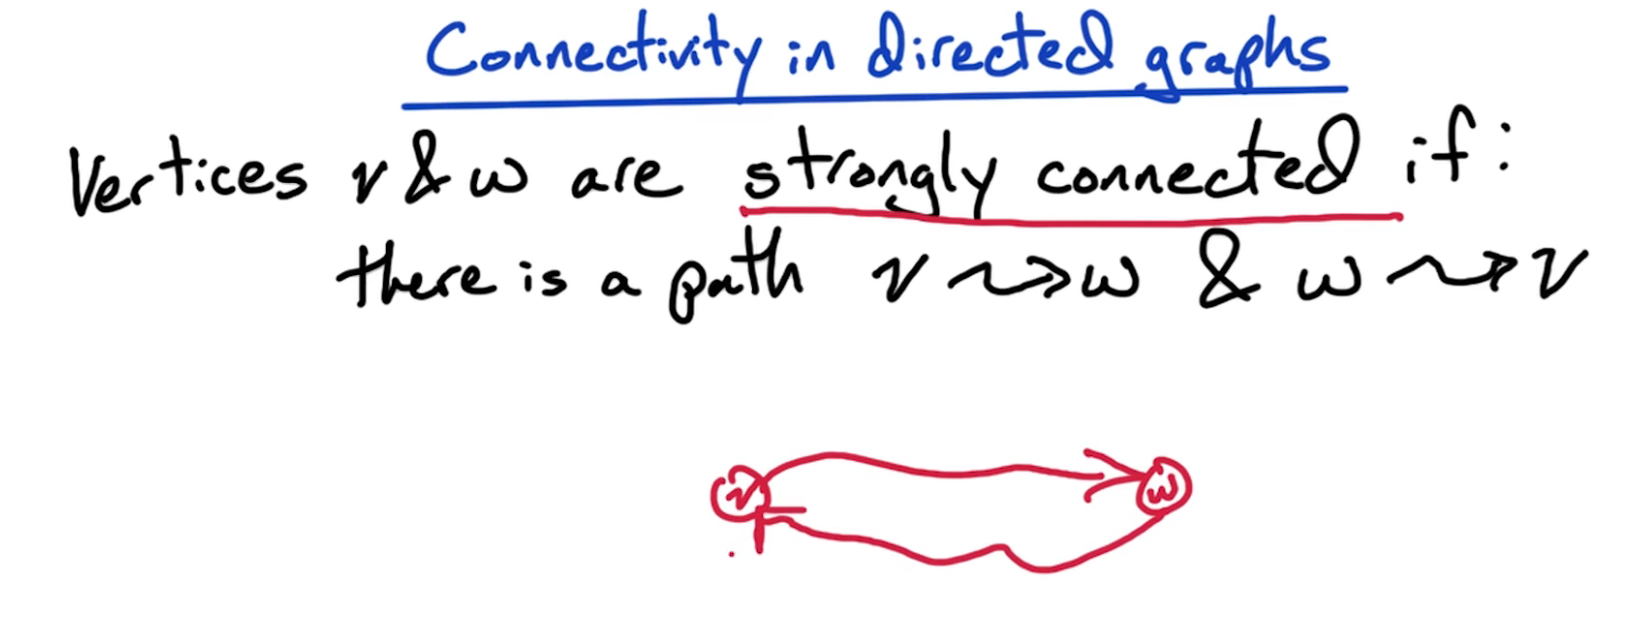 Connectivity in directed graphs
Vertices v & w are strongly connected if:
there is a path v ⤳ w & w ⤳ v
v w